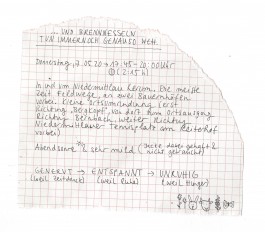 ... UND BRENNNESSELN
TUN IMMERNOCH GENAUSO WEH.
Donnerstag, 7.05.20 → 17:45-20:00 Uhr
(2:15 h)
In und um Niedermittlau herum. Die meiste
Zeit Feldwege, an zwei Bauernhöfen
vorbei. Kleine Ortsumrundung (erst
Richtung „Bergkopf", von dort zum Ortsausgang
Richtung Bernbach, weiter Richtung
Niedermittlauer Tennisplatz am Reiterhof
vorbei)
Abendsonne & sehr mild (Jacke dabei gehabt &
nicht gebraucht)
GENERVT → ENTSPANNT → UNRUHIG
(weil Zeitdruck) (weil Ruhe) (weil Hunger)